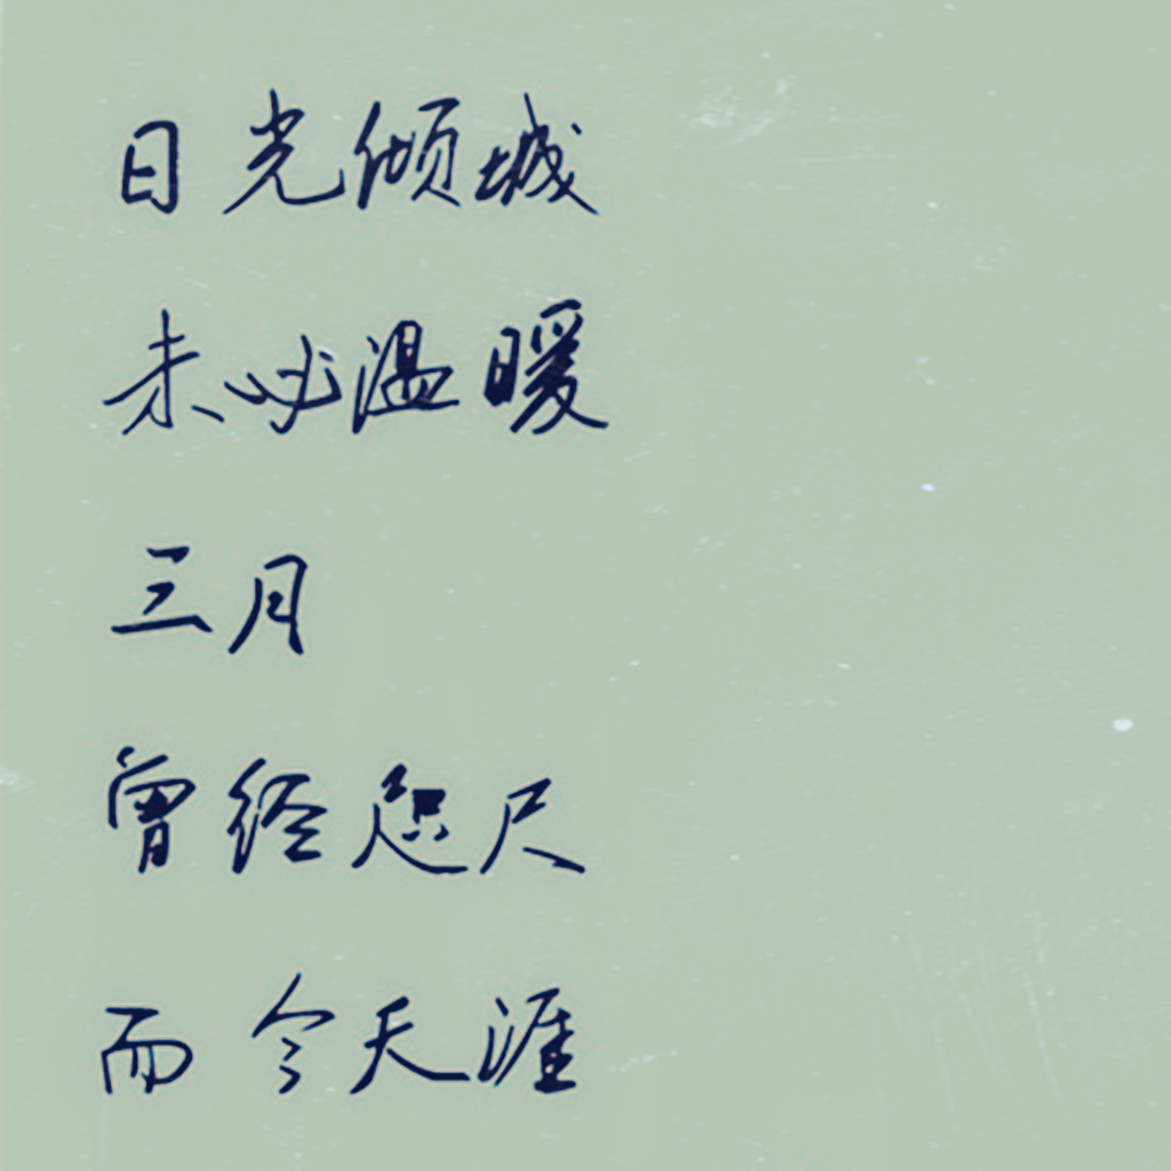 日光倾城
未必温暖
三月
曾经咫尺
而今天涯